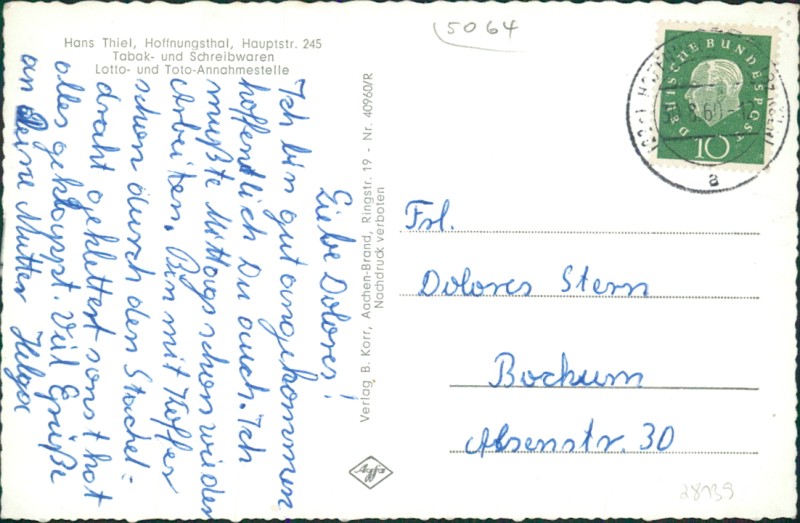 Hans Thiel, Hoffnungsthal, Hauptstr. 245
Tabak- und Schreibwaren
Lotto- und Toto-Annahmestelle
Liebe Dolores!
Ich bin gut angekommen
hoffentlich Du auch. Ich
mußte Mittags schon wieder
Arbeiten. Bin mit Koffer
schon durch den Stachel-
draht geklettert sonst hat
alles geklappt. Viel Grüße
an Deine Mutter Helga
Verlag B. Korr, Aachen-Brand, Ringstr. 19 - Nr. 40960/R
Nachdruck verboten
Agfa
5064
DEUTSCHE BUNDESPOST
10
a
Frl.
Dolores Stern
Bochum
Alsenstr. 30
28139